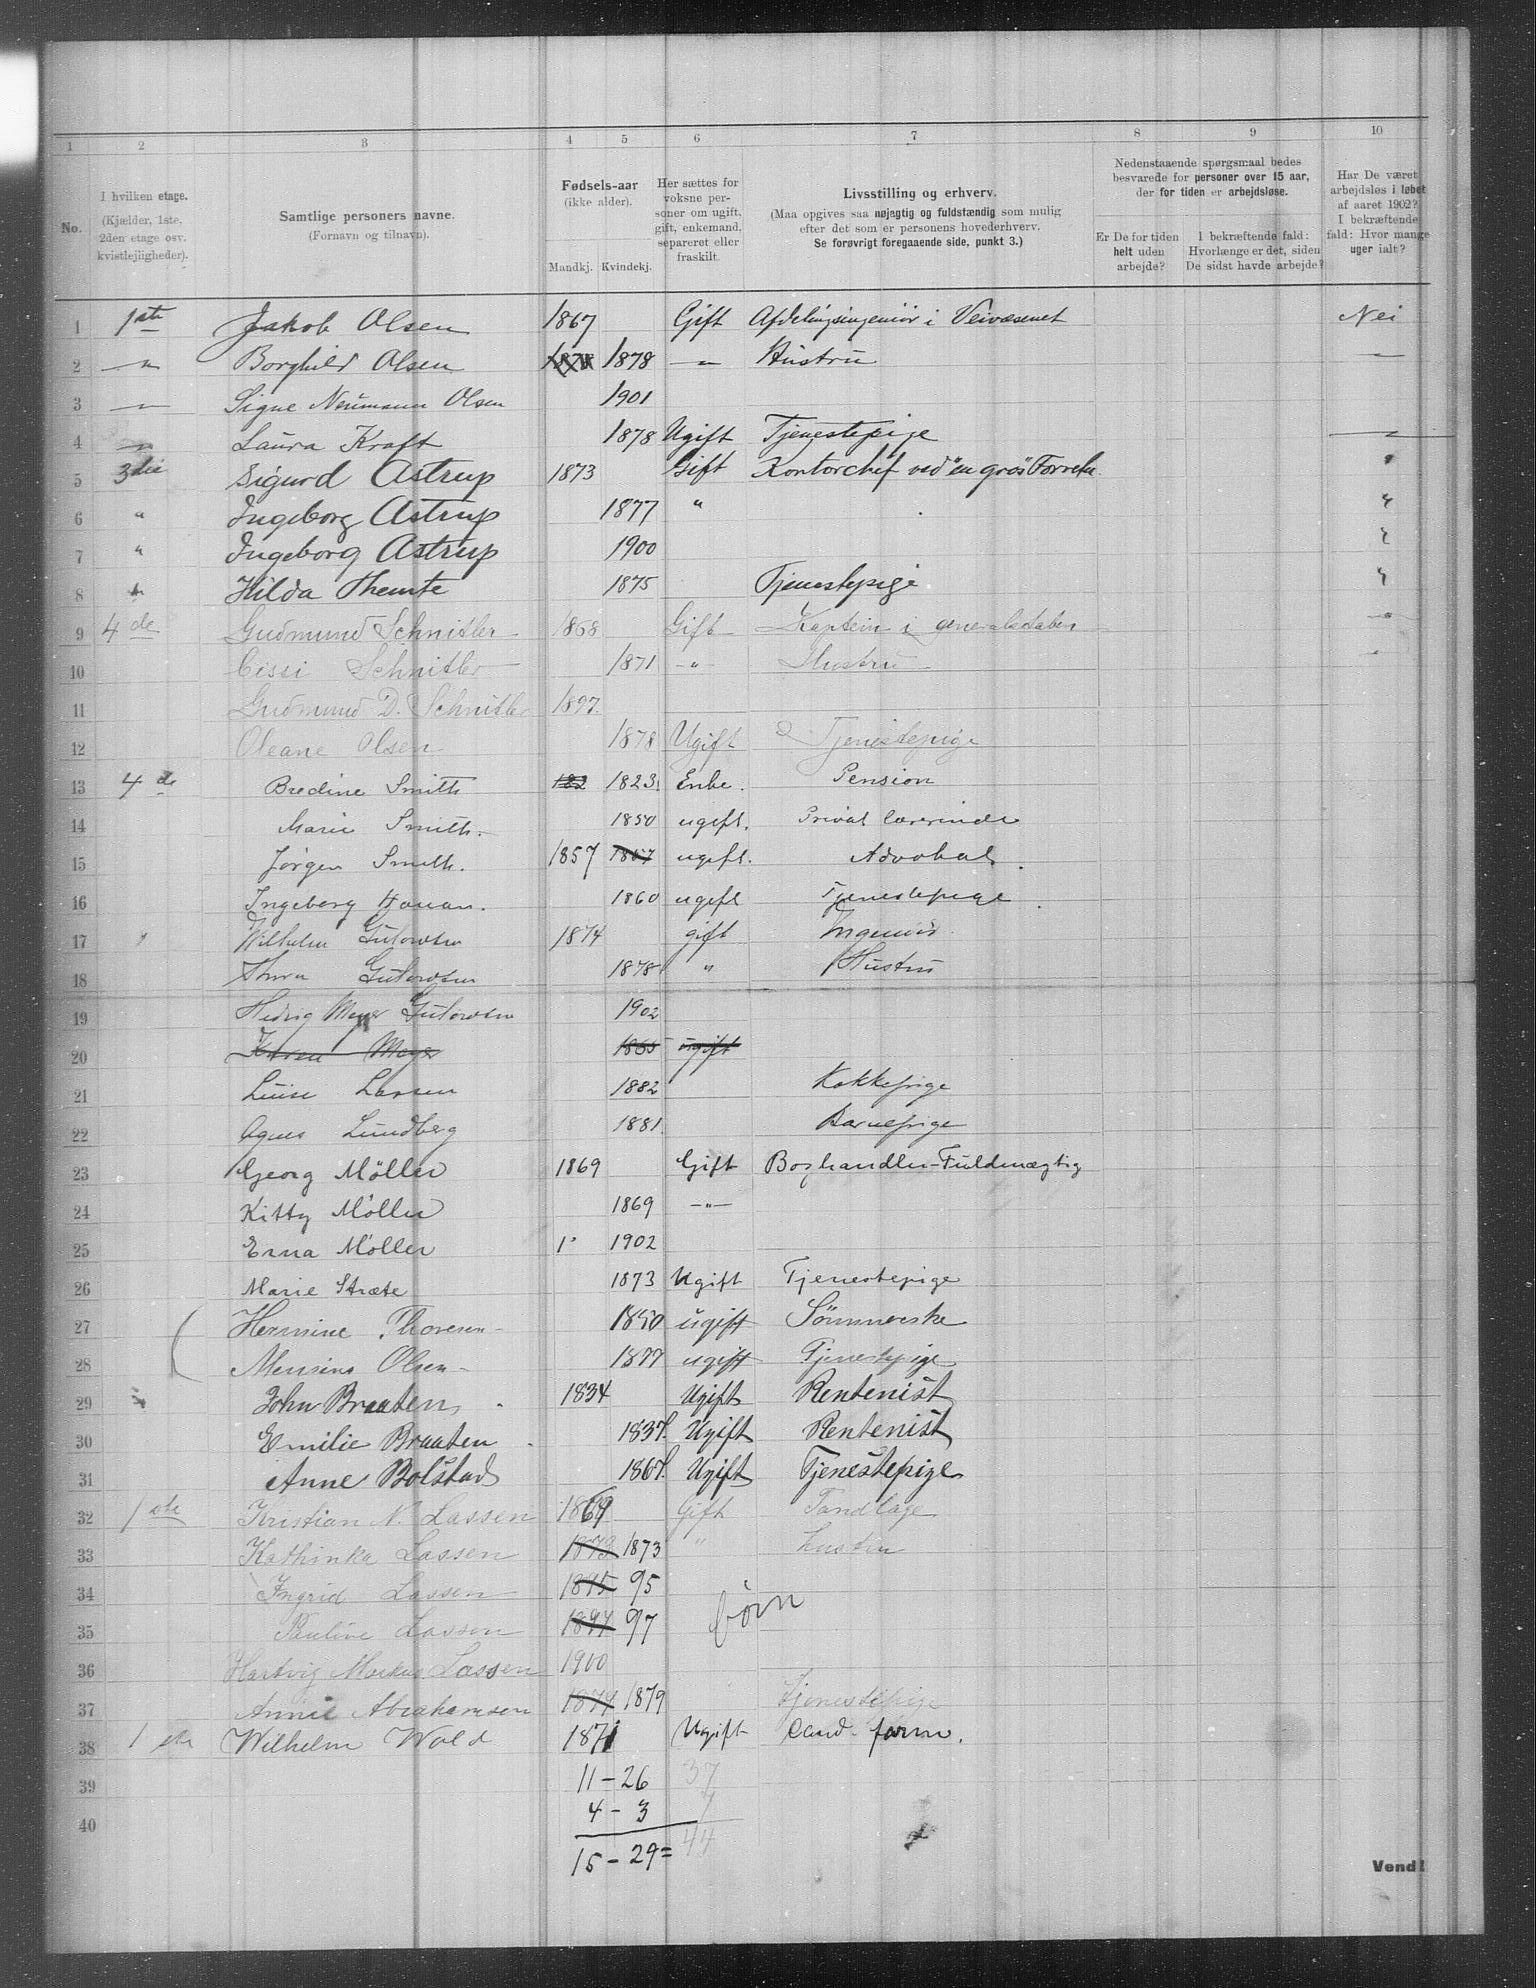 1 2 3 4 5 6 7 8 9 10
No.
I hvilken etage.
(Kjælder, 1ste.
2den etage osv.
kvistleiligheder).
Samtlige personers navne.
(Fornavn og tilnavn).
Fødsels-aar
(ikke alder).
Mandkj. Kvindekj.
Her sættes for
voksne per-
soner om ugift,
gift, enkemand,
separeret eller
fraskilt.
Livsstilling og erhverv.
(Maa opgives saa nøjagtig og fuldstændig som mulig
efter det som er personens hovederhverv.
Se forøvrigt foregaaende side, punkt 3.)
Nedenstaaende spørgsmaal bedes
besvarede for personer over 15 aar,
der for tiden er arbejdsløse.
Er De for tiden
helt uden
arbejde?
I bekræftende fald:
Hvorlænge er det, siden
De sidst havde arbejde?
Har De været
arbejdsløs i løbet
af aaret 1902?
I bekræftende
fald: Hvor mange
uger ialt?
1 1ste Jakob Olsen 1867 Gift Afdelingsingeniör i Veivæsenet Nei
2 — " — Borghild Olsen 1878 1878 — " — Hustru —
3 — " — Signe Neumann Olsen 1901
4 — " — Laura Kraft 1878 Ugift Tjenestepige —
5 3die Sigurd Astrup 1873 Gift Kontorchef ved "en gros" Forretn. "
6 " Ingeborg Astrup 1877 " "
7 " Ingeborg Astrup 1900 "
8 " Hilda 1875 Tjenestepige "
9 4de Gudmund Schnitler 1868 Gift Kaptein i generalstaben "
10 Cissi Schnitler 1871 — " — Hustru "
11 Gudmund D. Schnitler 1897.
12 Oleane Olsen 1878 Ugift Tjenestepige
13 4de Bredine Smith 182 1823. Enke. Pension
14 Marie Smith. 1850 ugift. Privat lærerinde
15 Jörgen Smith. 1857 1857 ugift. Advokat.
16 Ingeborg 1860 ugift Tjenestepige.
17 " Wilhelm Gulowsen 1874 gift Ingeniör.
18 Thora Gulowsen 1878 " Hustru
19 Hedvig Meyer Gulowsen 1902
20 Karen Meyer 1865 ugift
21 Luise Larsen 1882 Kokkepige
22 Agnes Lundberg 1881. Barnepige
23 Georg Möller 1869 Gift Boghandler-Fuldmægtig
24 Kitty Möller 1869 — " —
25 Erna Möller 1 1902
26 Marie Stræte 1873 Ugift Tjenestepige
27 Hermine Thoresen 1850 ugift Sömmerske
28 Mensine Olsen 1877 ugift Tjenestepige
29 John Braaten 1834 Ugift Rentenist
30 Emilie Braaten 1837. Ugift Rentenist
31 Anne Bolstad 1867. Ugift Tjenestepige
32 1ste Kristian N. Lassen 1869 Gift Tandlæge
33 Kathinka Lassen 1873 1873 " hustru
34 Ingrid Lassen 1895 95
35 Pauline Lassen 1897 97 börn
36 Hartvig Markus Lassen 1900
37 Annie Abrahamsen 1879 1879 " Tjenestepige
38 1ste Wilhelm Wold 1871 Ugift Cand. farm.
39 11 - 26 37
40 4 - 3 7
15 - 29 = 44
Vend!